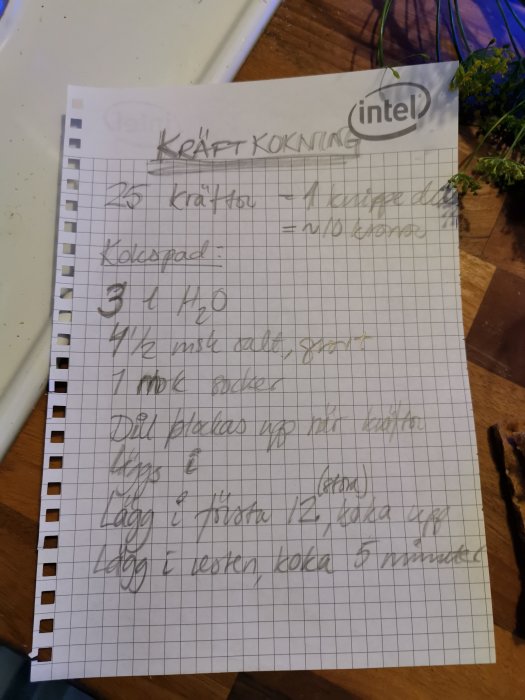 intel
KRÄFTKOKNING
25 kräftor = 1 knippe dill
= ~10 kronor
Kokspad:
3 l H₂O
4 1/2 msk salt, grovt
1 msk socker
Dill plockas upp när kräftor
läggs i
(stora)
Lägg i första 12, koka upp
Lägg i resten, koka 5 minuter